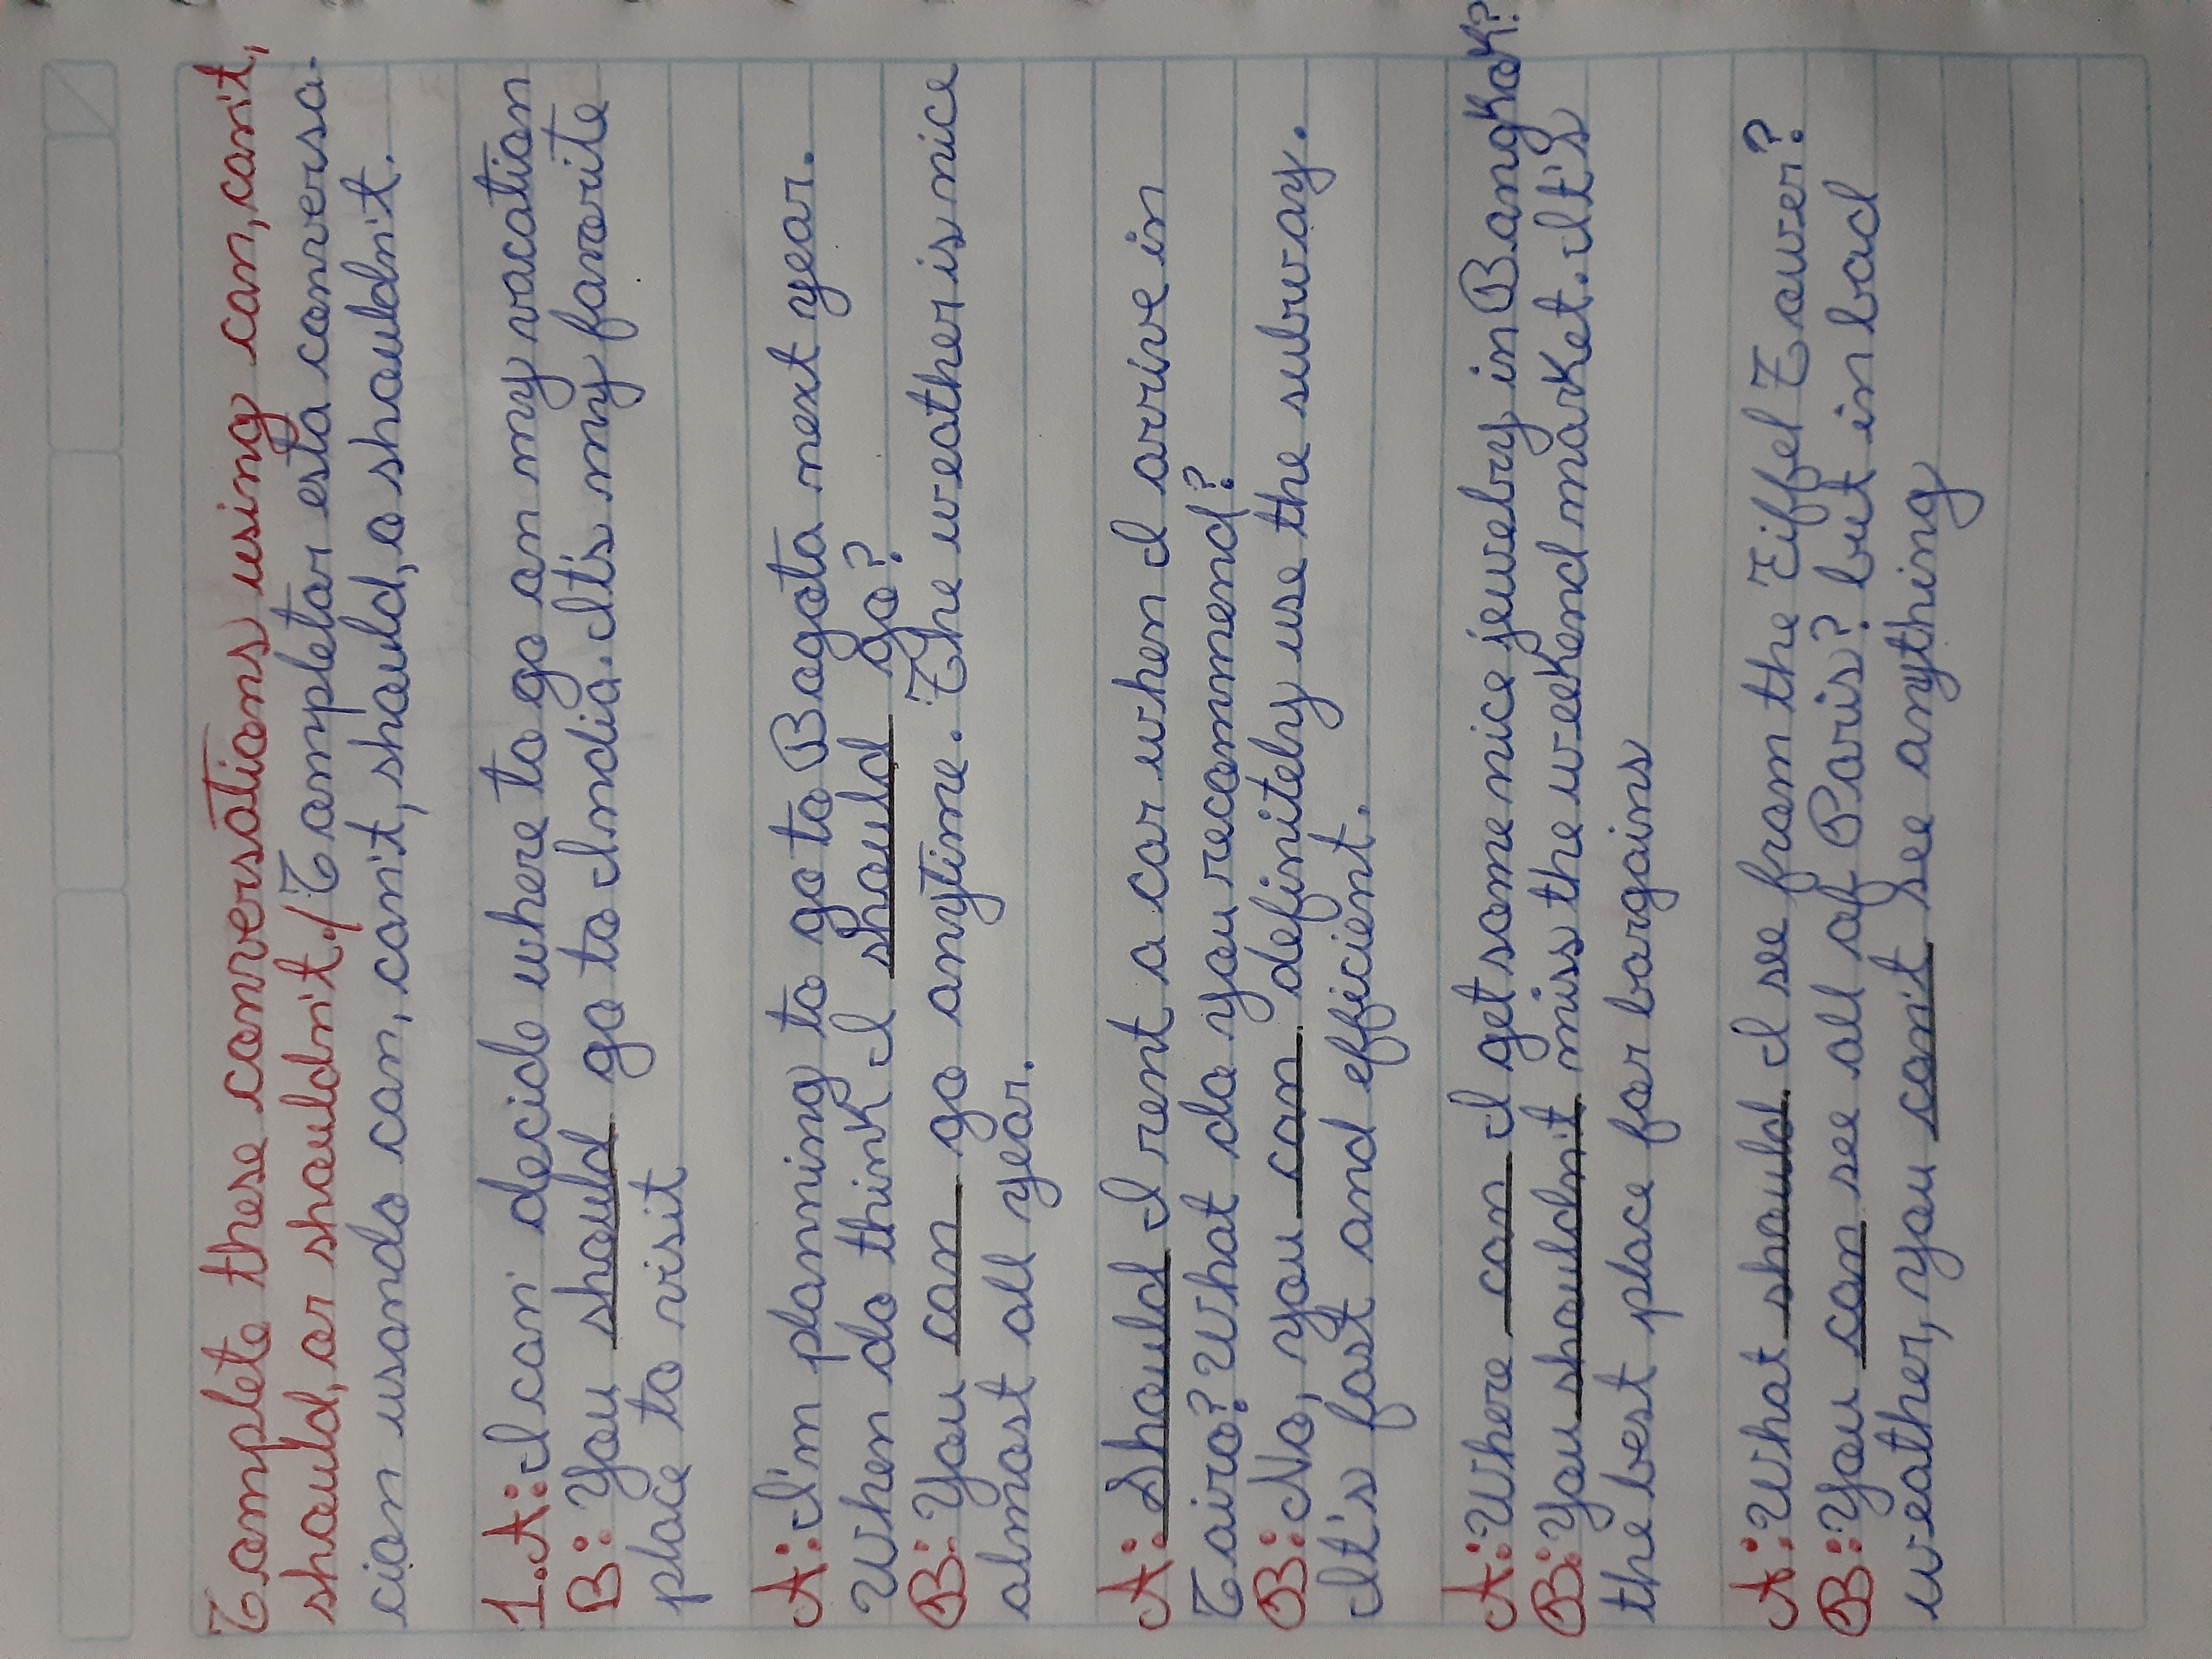 Complete these conversations using can, can't,
should, or shouldn't./Completar esta conversa-
cion usando can, can't, should, o shouldn't.
1.A: I can' decide where to go on my vacation
B: You should go to India. It's my favorite
place to visit
A: I'm planning to go to Bogota next year.
When do think I should go?
B: You can go anytime. The weather is nice
almost all year.
A: Should I rent a car when I arrive in
Cairo? What do you recommend?
B: No, you can definitely use the subway.
It's fast and efficient.
A: Where can I get some nice jewelry in Bangkok?
B: You shouldn't miss the weekend market. It's
the best place for bargains
A: What should I see from the Eiffel Tower?
B: You can see all of Paris? but in bad
weather, you can't see anything